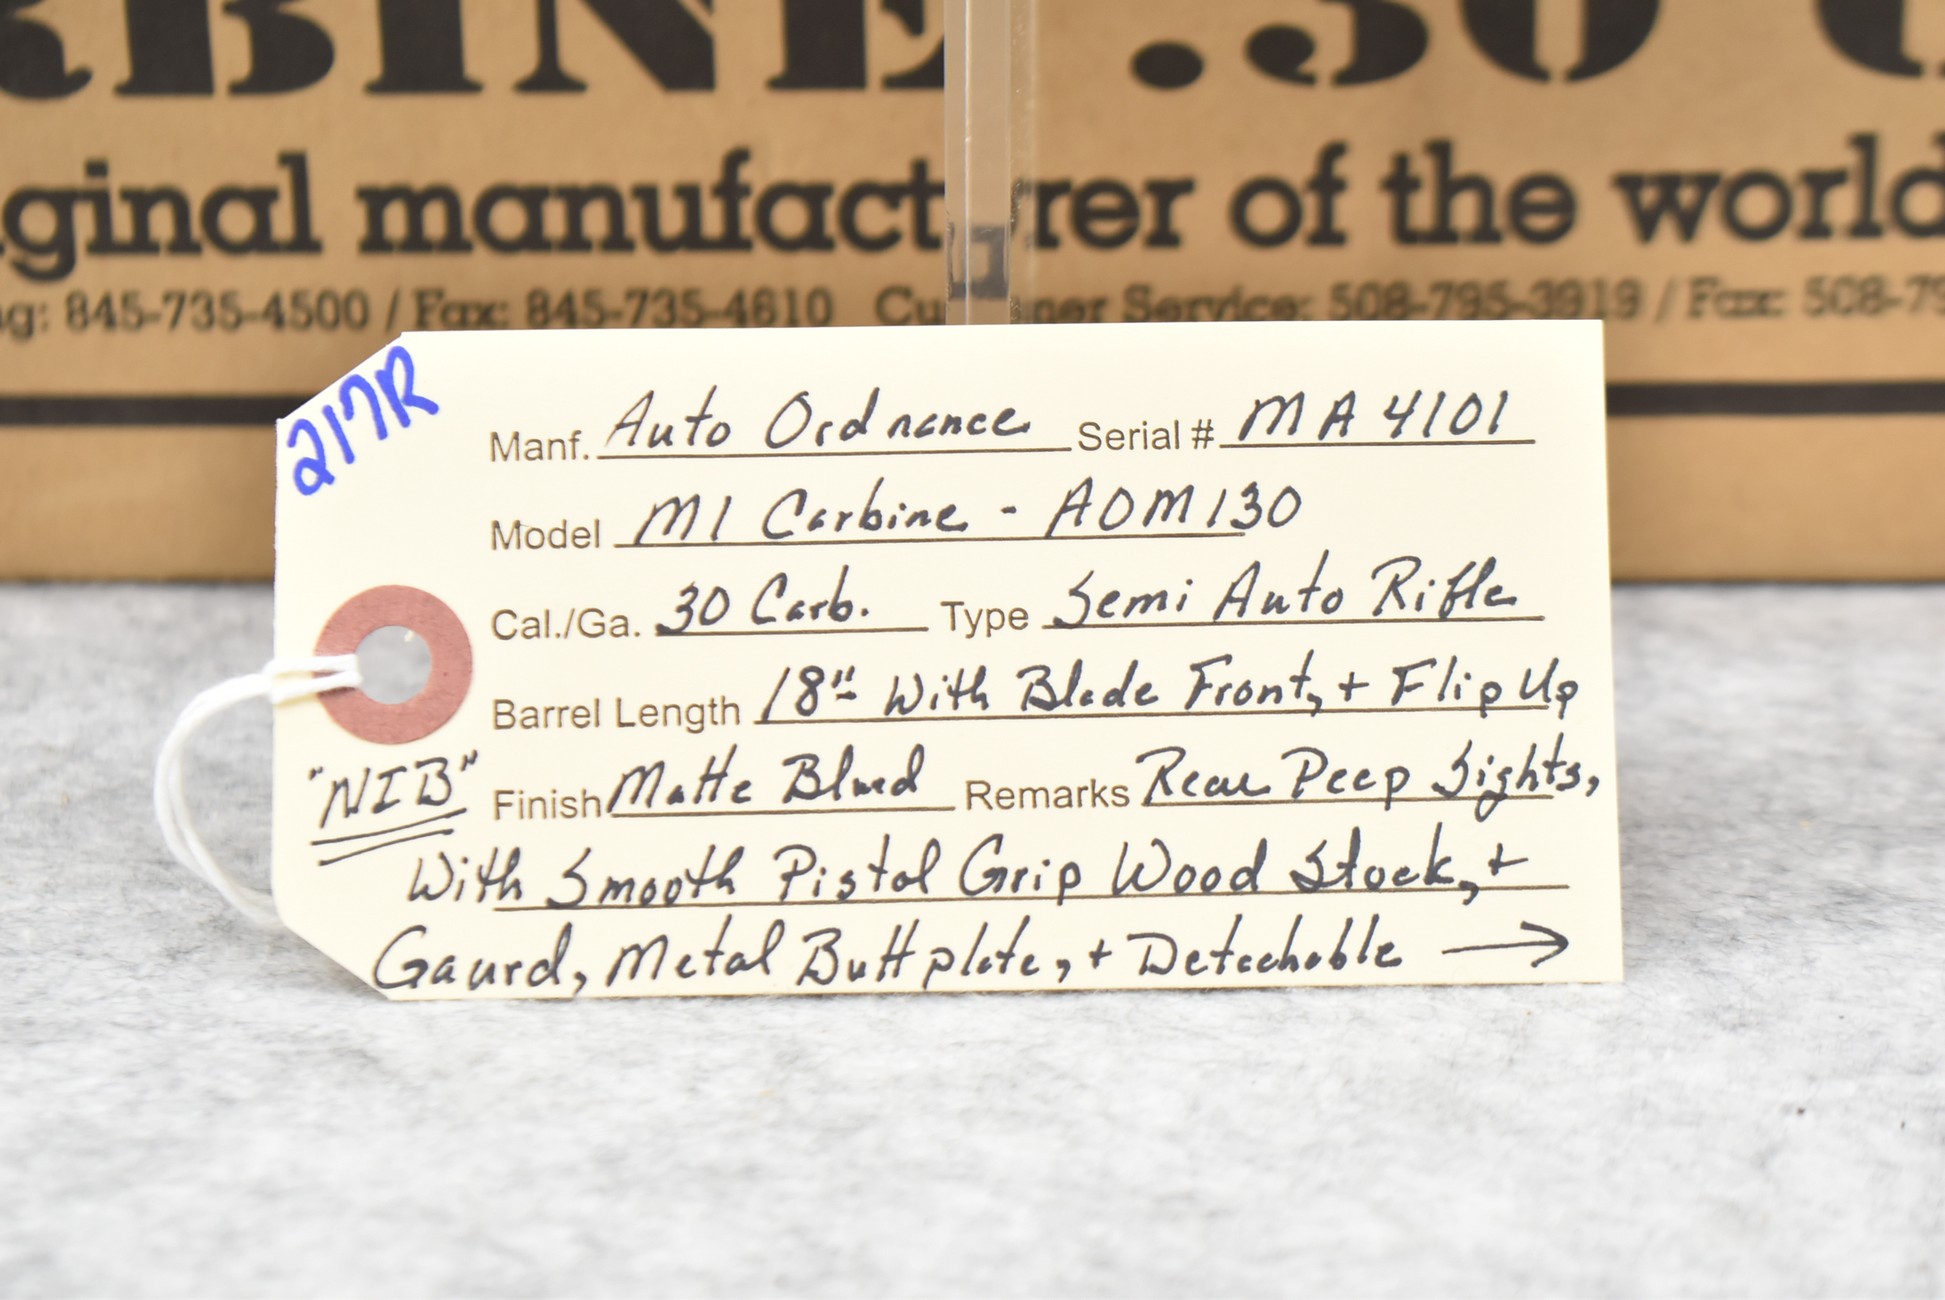 RBINE .30 C
iginal manufacturer of the world
ng: 845-735-4500 / Fax: 845-735-4610 Customer Service: 508-795-3919 / Fax: 508-79
217R
Manf. Auto Ordnance Serial # MA4101
Model M1 Carbine - AOM130
Cal./Ga. 30 Carb. Type Semi Auto Rifle
Barrel Length 18" With Blade Front, + Flip Up
"NIB" Finish Matte Blued Remarks Rear Peep Sights,
With Smooth Pistol Grip Wood Stock, +
Gaurd, Metal Buttplate, + Detachable →